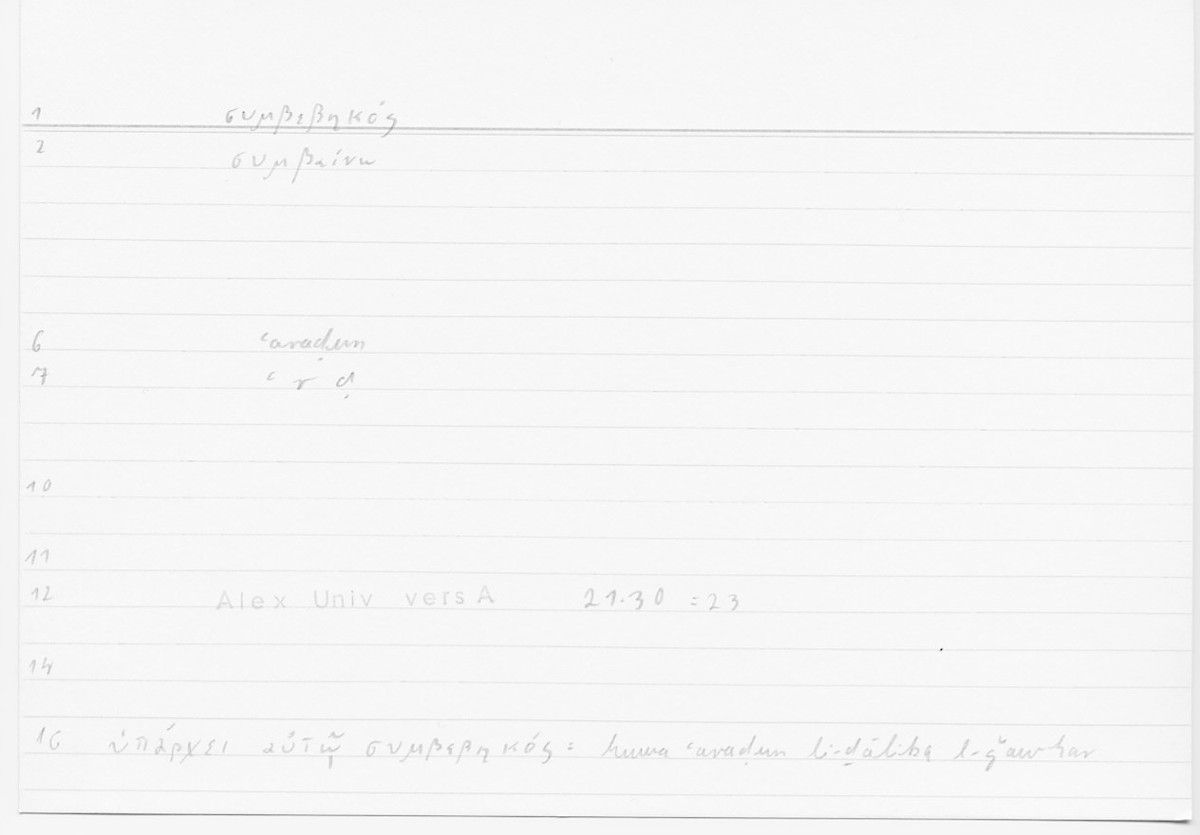 1 συμβεβηκός
2 συμβαίνω
6 ʿaraḍun
7 ʿ r ḍ
10
11
12 Alex Univ vers A 21.30 = 23
14
16 ὑπάρχει αὐτῷ συμβεβηκός = huwa ʿaraḍun li-ḏālika l-ǧawhar